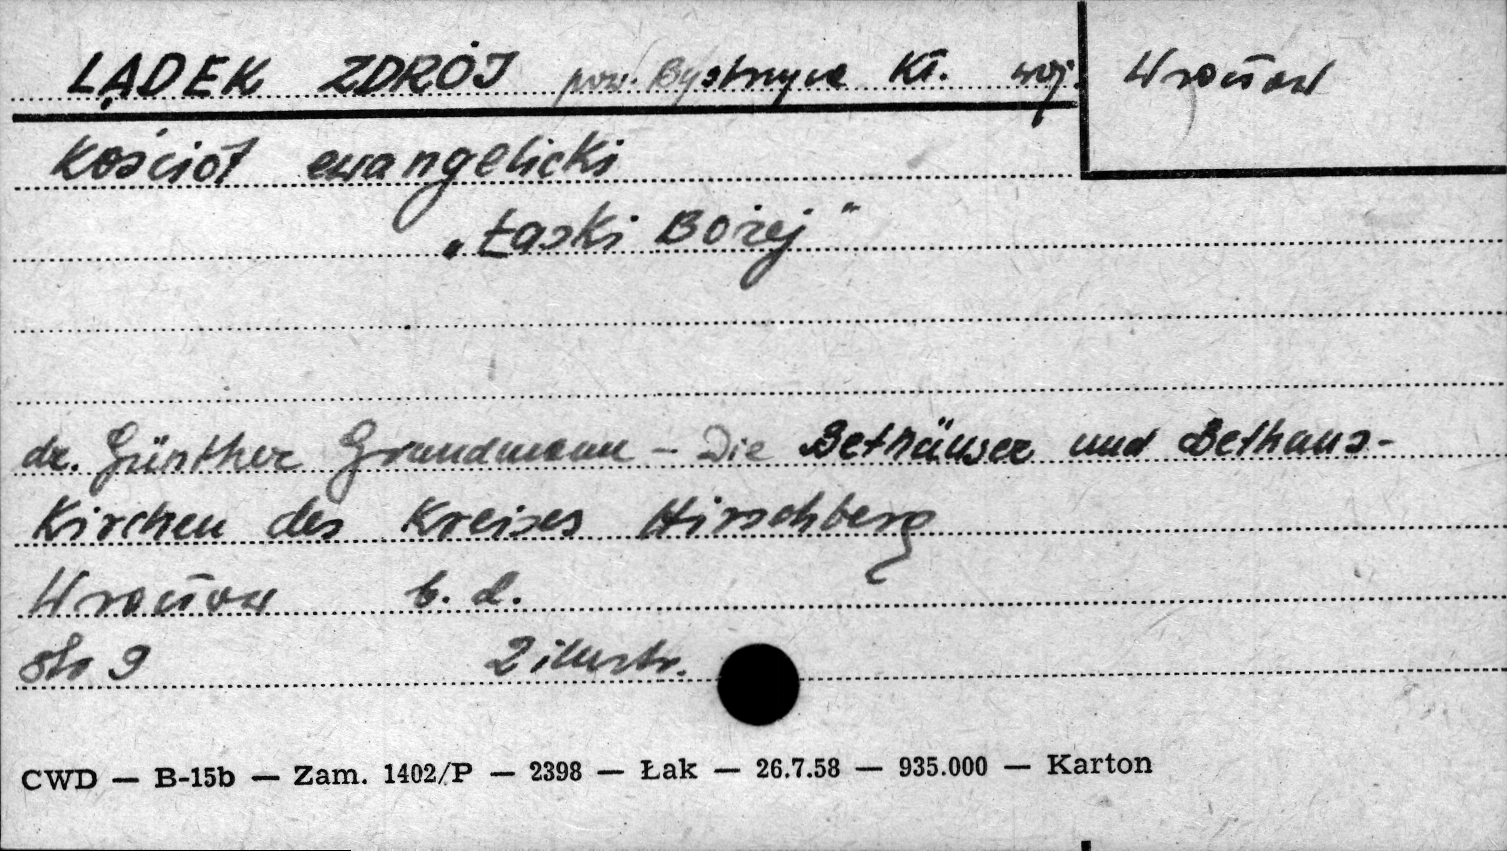 LĄDEK ZDRÓJ pow. Bystrzyca Kł. woj. Wrocław
Kościół ewangelicki
„Łaski Bożej"
dr. Günther Grundmann – Die Bethäuser und Bethaus-
Kirchen des Kreises Hirschberg
Wrocław b. d.
str 9 2 ilustr.
CWD — B-15b — Zam. 1402/P — 2398 — Łak — 26.7.58 — 935.000 — Karton